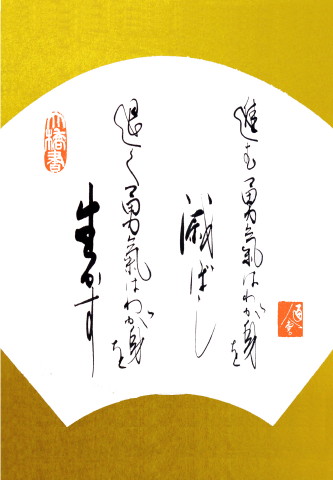 進む勇氣はわが身を
滅ぼし
退く勇氣はわが身を
生かす